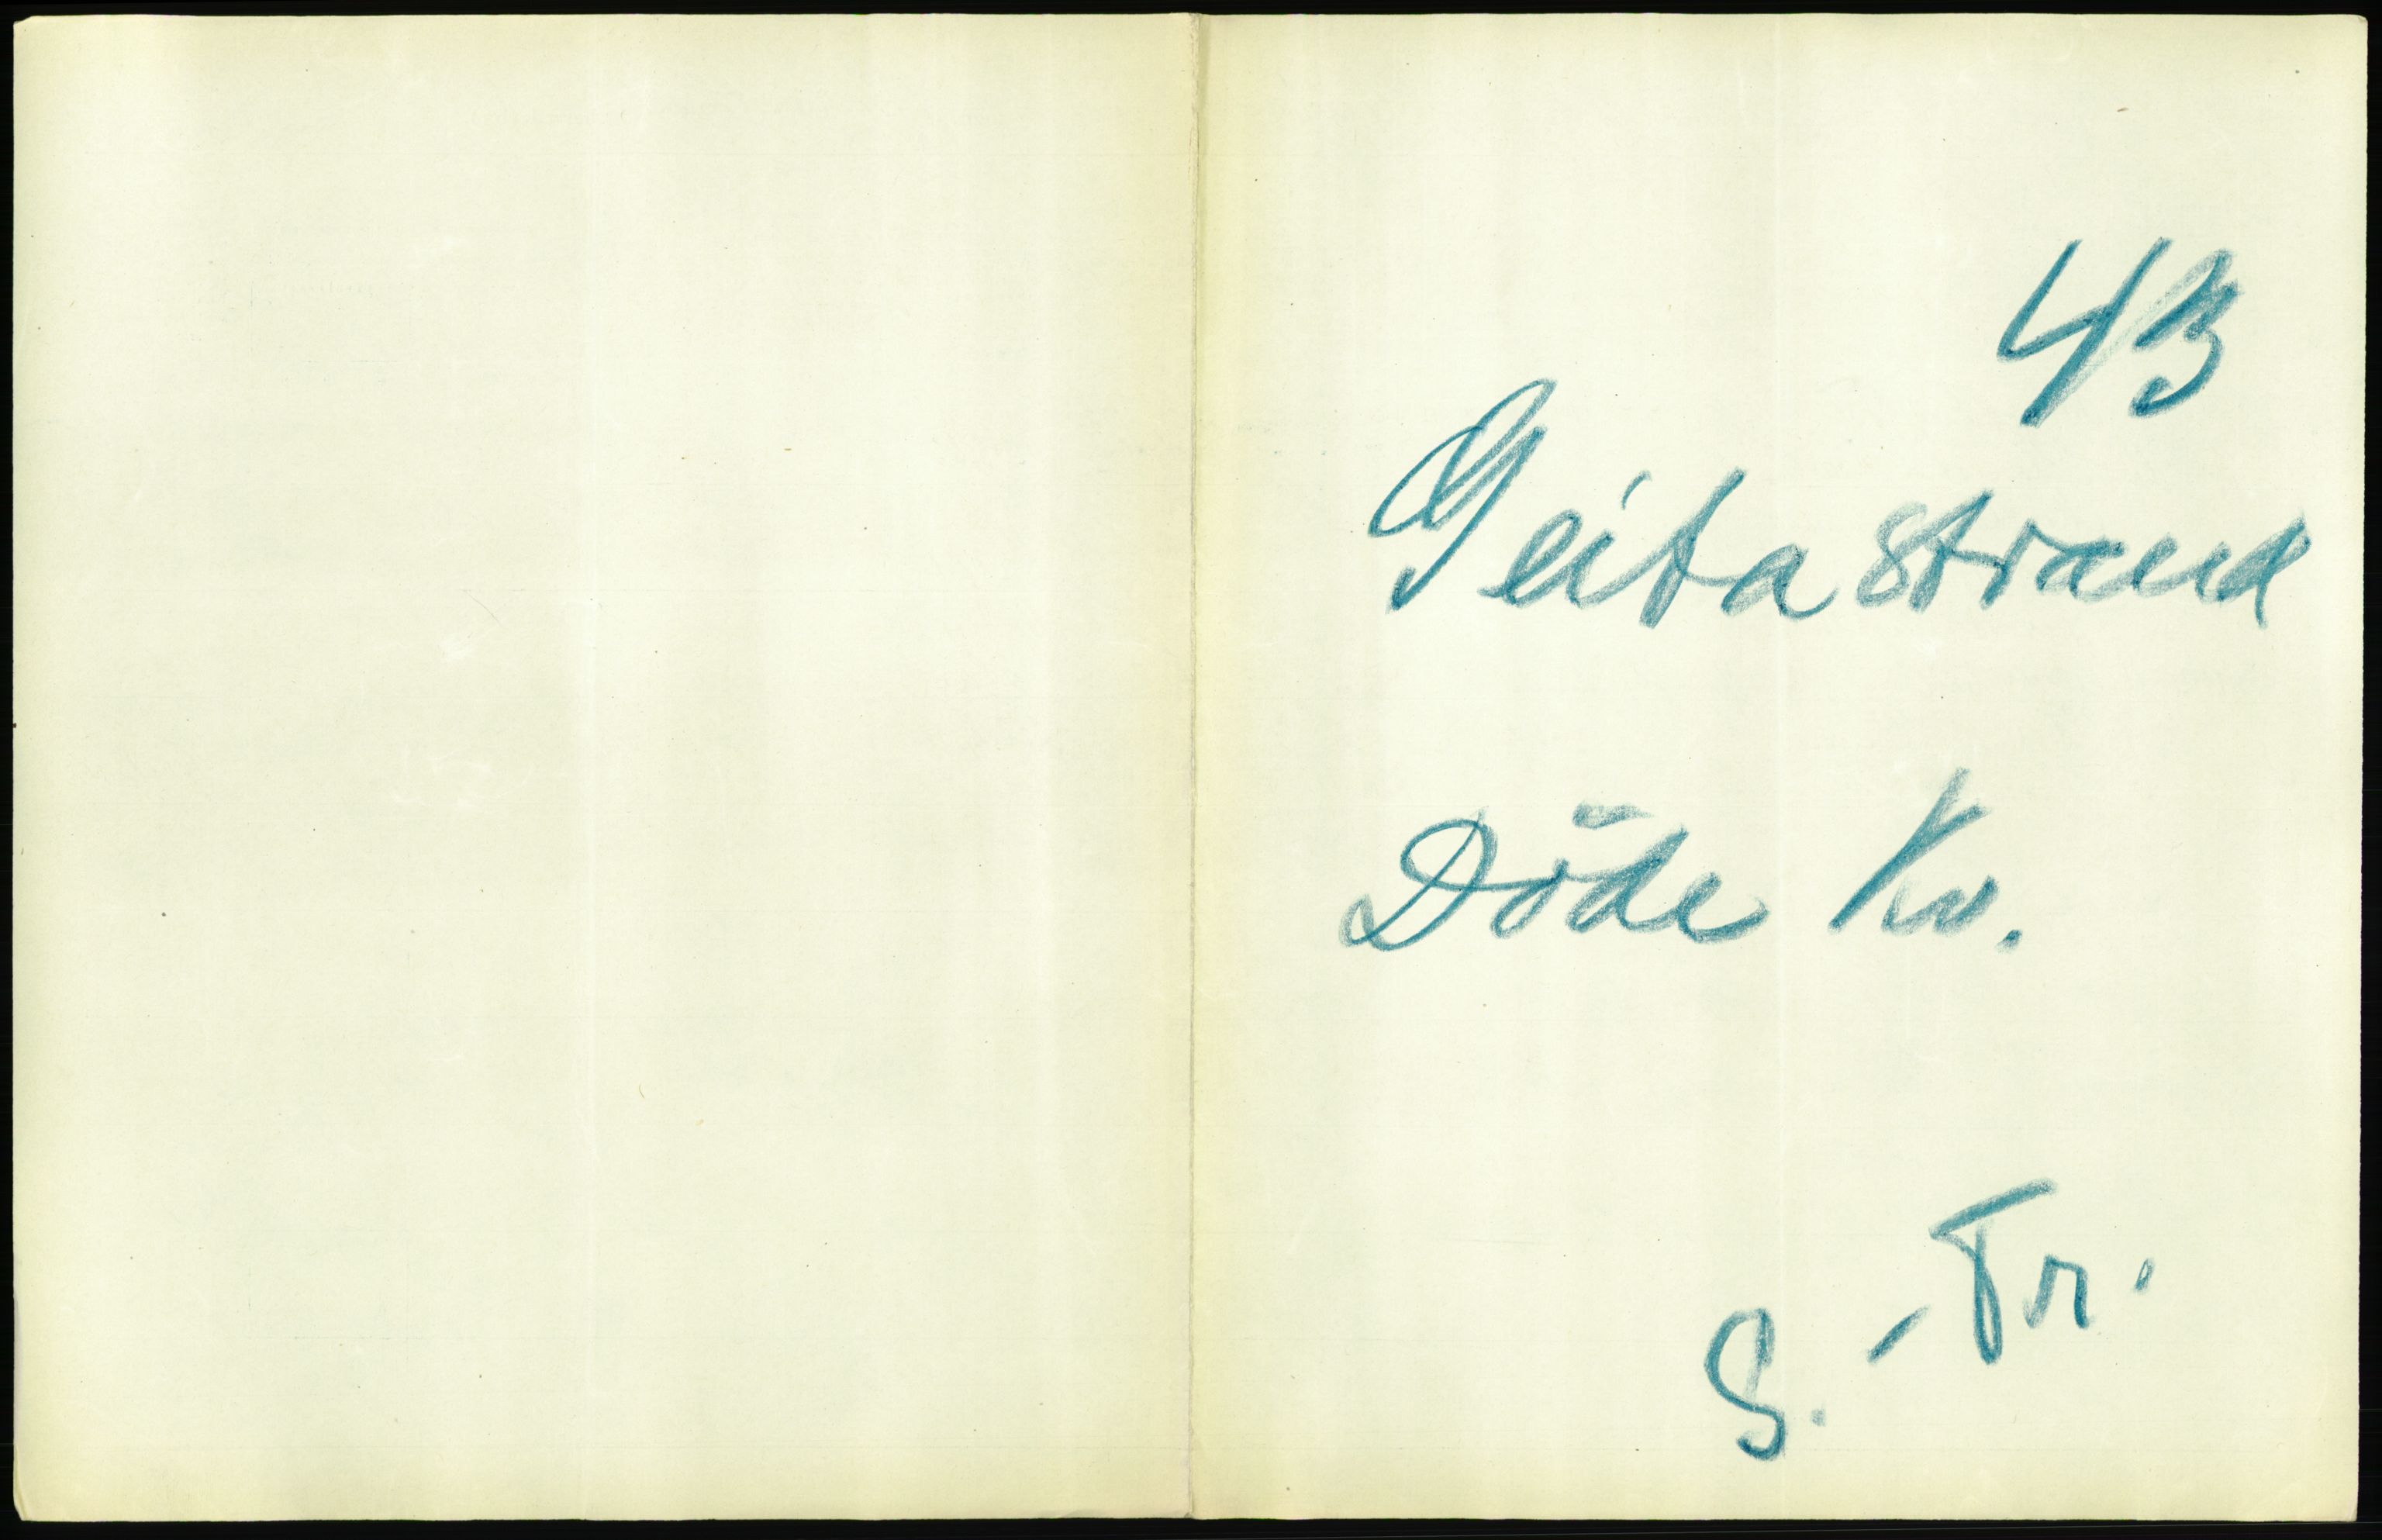 43
Geitastrand
Döde Kv.
S. - Tr.